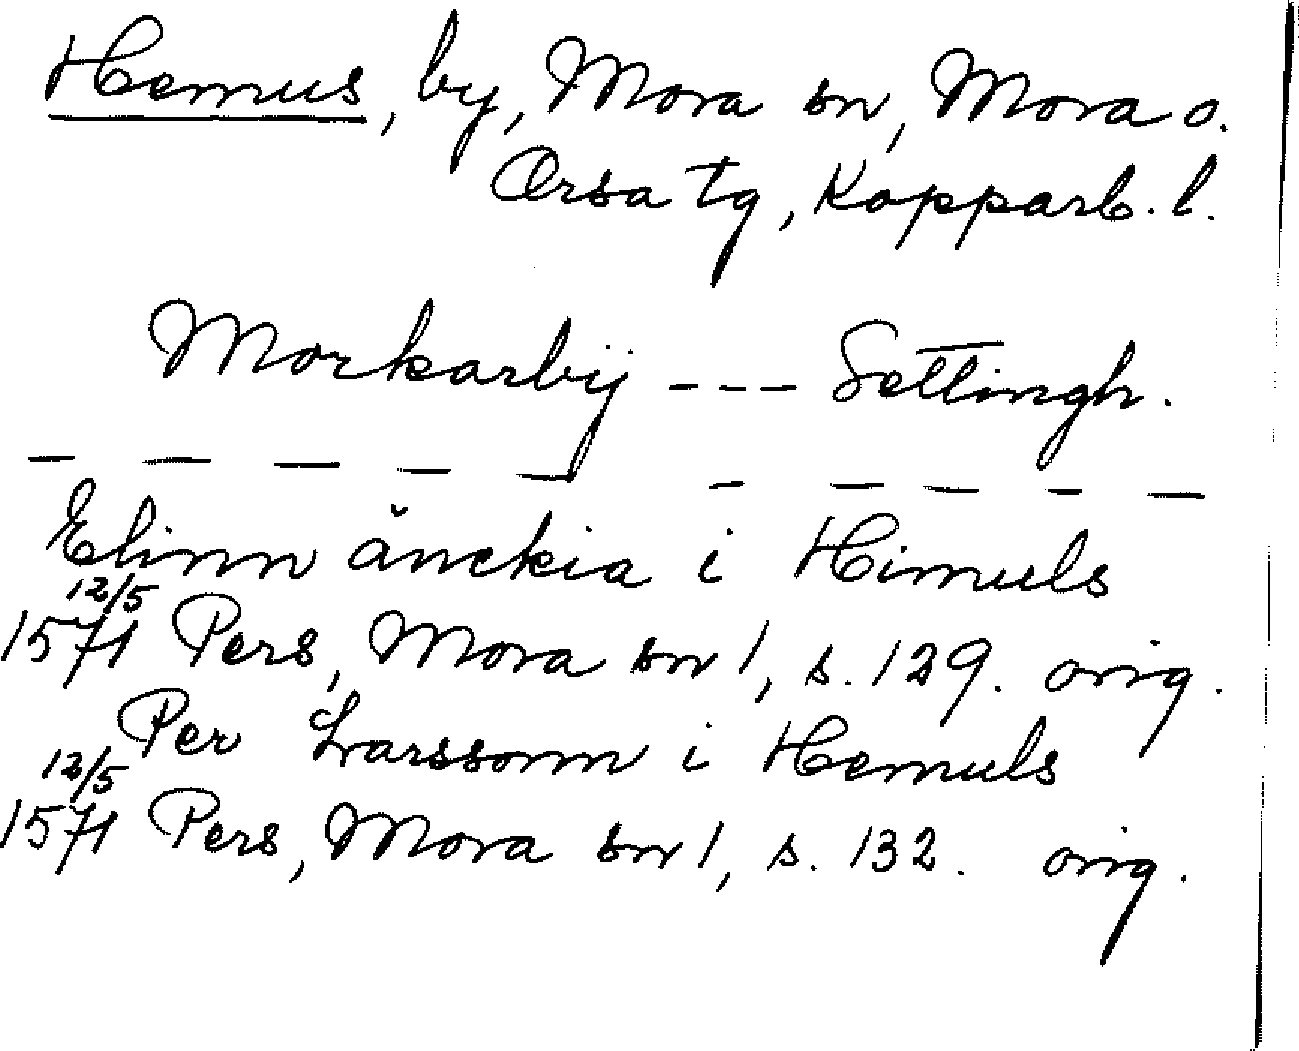 Hemus, by, Mora sn, Mora o.
Orsa tg, Kopparb. l.
Morkarbÿ --- Settingh.
— — — — — — — — — —
Elinn ånckia i Himuls
12/5
1571 Pers, Mora sn 1, s. 129. orig.
Per Larssonn i Hemuls
12/5
1571 Pers, Mora sn 1, s. 132. orig.